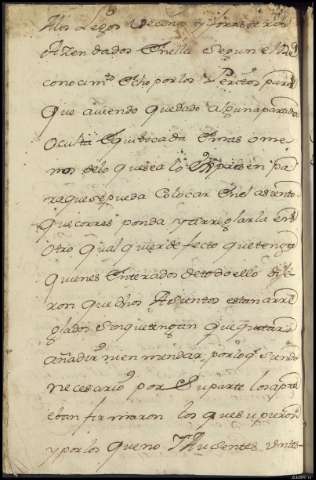 A los Legos Vecinos y forasteros
Azendados En ella segun el Re
conocimto. Echo por los Peritos para
que aviendo quedado alguna partida
oculta Equibocada En mas o me
nos delo que sea lo Expresen pa
raque se pueda Colocar En el asiento
que corresponda y arreglarla En
otro qual quier defecto que tenga
quienes Enterados de todo ello dije
ron que dhos Asientos estan arre
glados sin que tengan que quitar
añadir ni en mendar, por lo q. siendo
necesario por su parte los apro
eban firmaron los que supieron
y por los que no Thu